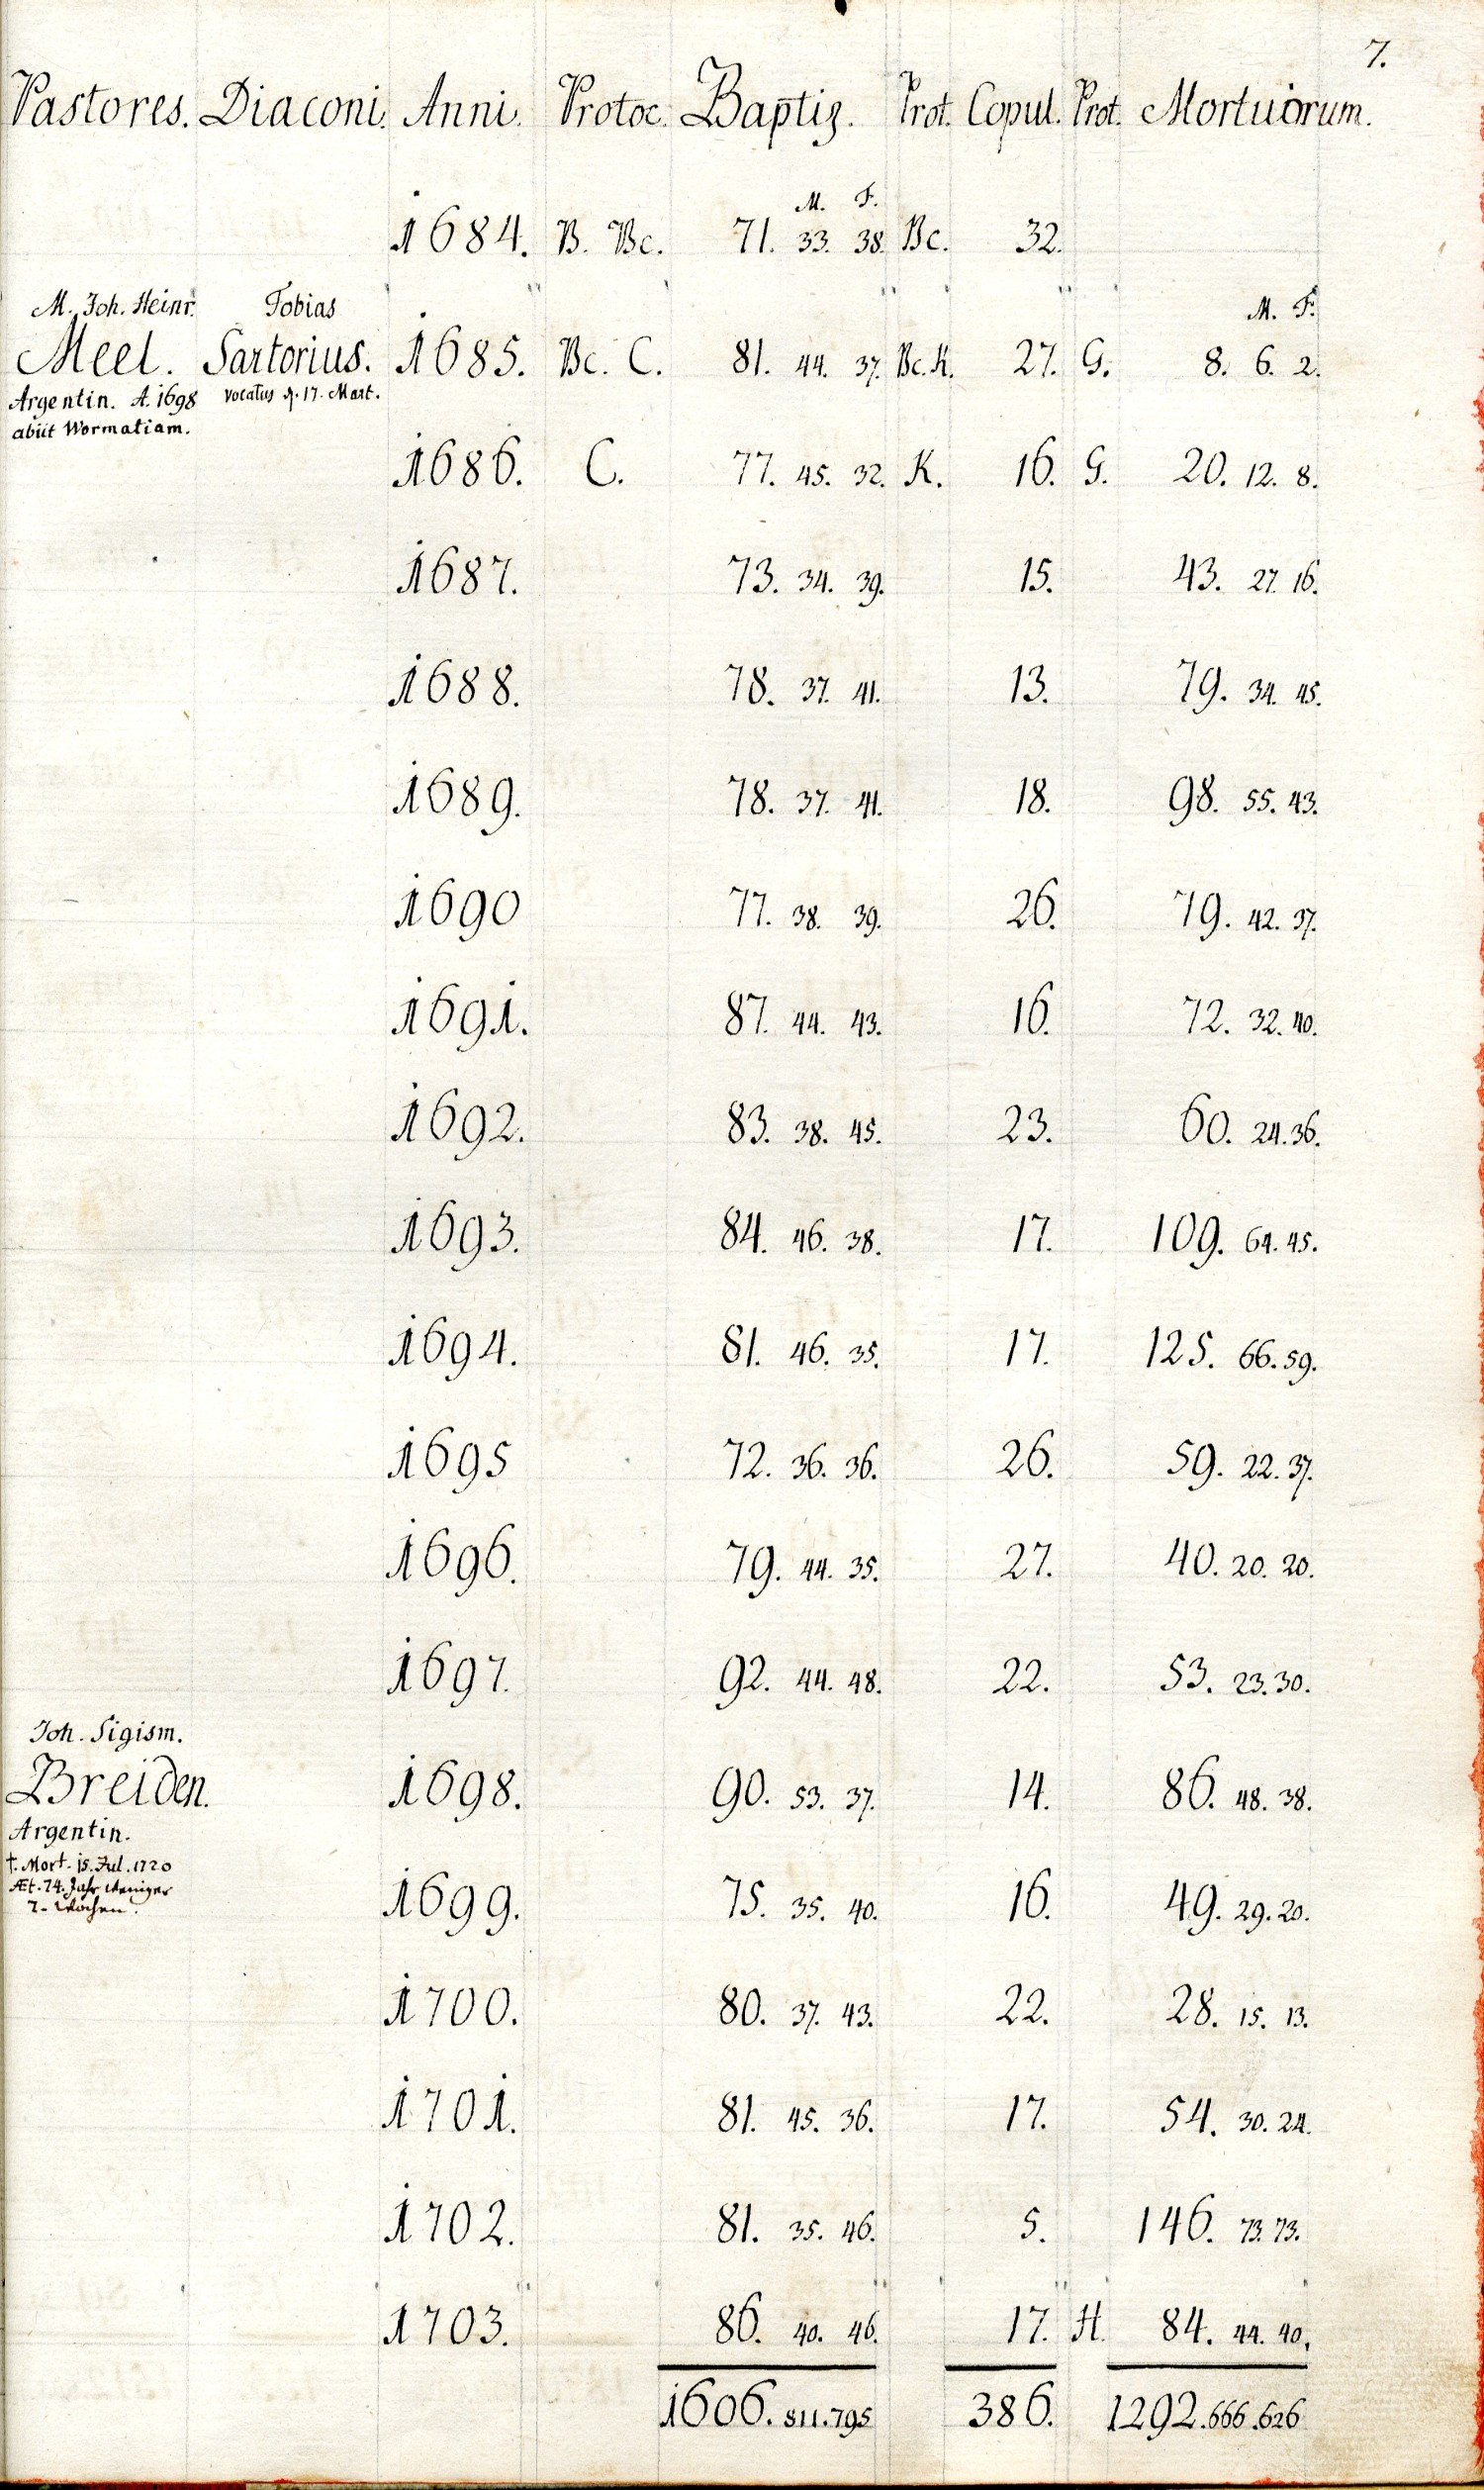 7.
Pastores. Diaconi. Anni. Protoc. Baptiz. Prot. Copul. Prot. Mortuorum.
M. F.
1684. B. Bc. 71. 33. 38. Bc. 32.
M. Joh. Heinr. Tobias M. F.
Meel. Sartorius. 1685. Bc. C. 81. 44. 37. Bc. K. 27. G. 8. 6. 2.
Argentin. A. 1698 vocatus d. 17. Mart.
abiit Wormatiam.
1686. C. 77. 45. 32. K. 16. G. 20. 12. 8.
1687. 73. 34. 39. 15. 43. 27. 16.
1688. 78. 37. 41. 13. 79. 34. 45.
1689. 78. 37. 41. 18. 98. 55. 43.
1690 77. 38. 39. 26. 79. 42. 37.
1691. 87. 44. 43. 16. 72. 32. 40.
1692. 83. 38. 45. 23. 60. 24. 36.
1693. 84. 46. 38. 17. 109. 64. 45.
1694. 81. 46. 35. 17. 125. 66. 59.
1695 72. 36. 36. 26. 59. 22. 37.
1696. 79. 44. 35. 27. 40. 20. 20.
1697. 92. 44. 48. 22. 53. 23. 30.
Joh. Sigism.
Breiden. 1698. 90. 53. 37. 14. 86. 48. 38.
Argentin.
†. Mort. 15. Jul. 1720
Æt. 74. Jahr weniger
7. Wochen.
1699. 75. 35. 40. 16. 49. 29. 20.
1700. 80. 37. 43. 22. 28. 15. 13.
1701. 81. 45. 36. 17. 54. 30. 24.
1702. 81. 35. 46. 5. 146. 73. 73.
1703. 86. 40. 46. 17. H. 84. 44. 40.
1606. 811. 795 386. 1292. 666. 626